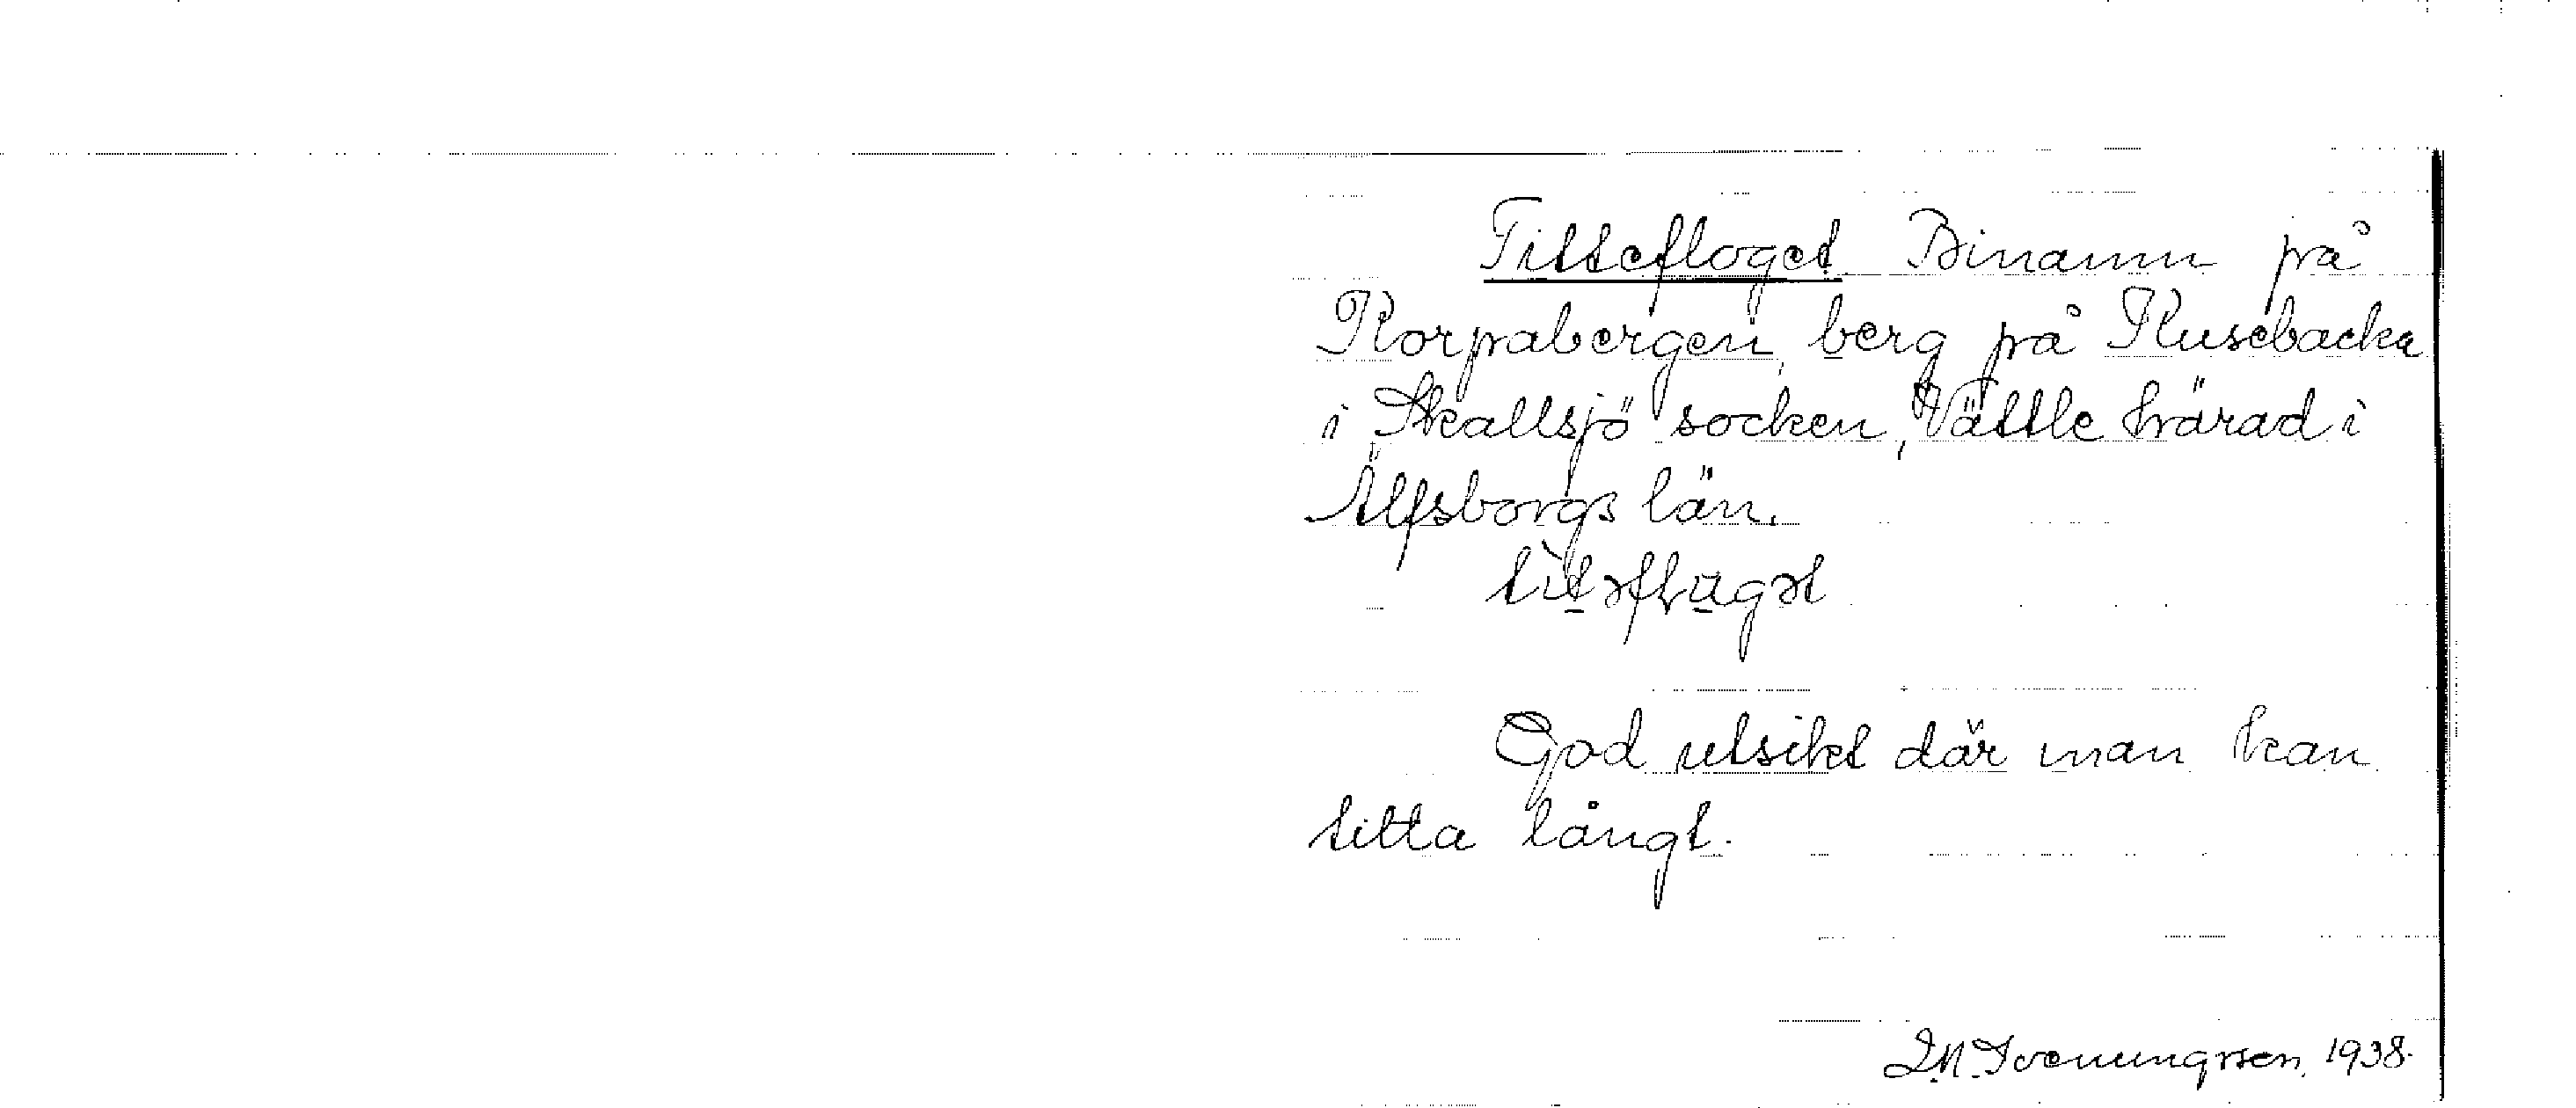 Tittefloget Binamn på
Korpabergen, berg på Kusebacka
i Skallsjö socken, Vättle härad i
Älfsborgs län.
God utsikt där man kan
titta långt.
1938.